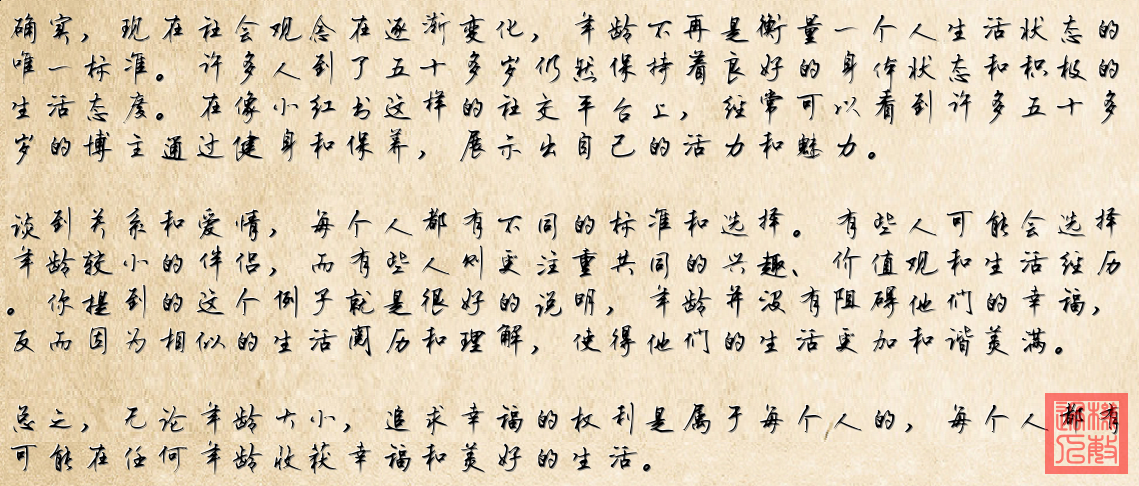 确实，现在社会观念在逐渐变化，年龄不再是衡量一个人生活状态的
唯一标准。许多人到了五十多岁仍然保持着良好的身体状态和积极的
生活态度。在像小红书这样的社交平台上，经常可以看到许多五十多
岁的博主通过健身和保养，展示出自己的活力和魅力。
谈到关系和爱情，每个人都有不同的标准和选择。有些人可能会选择
年龄较小的伴侣，而有些人则更注重共同的兴趣、价值观和生活经历
。你提到的这个例子就是很好的说明，年龄并没有阻碍他们的幸福，
反而因为相似的生活阅历和理解，使得他们的生活更加和谐美满。
总之，无论年龄大小，追求幸福的权利是属于每个人的，每个人都有
可能在任何年龄收获幸福和美好的生活。